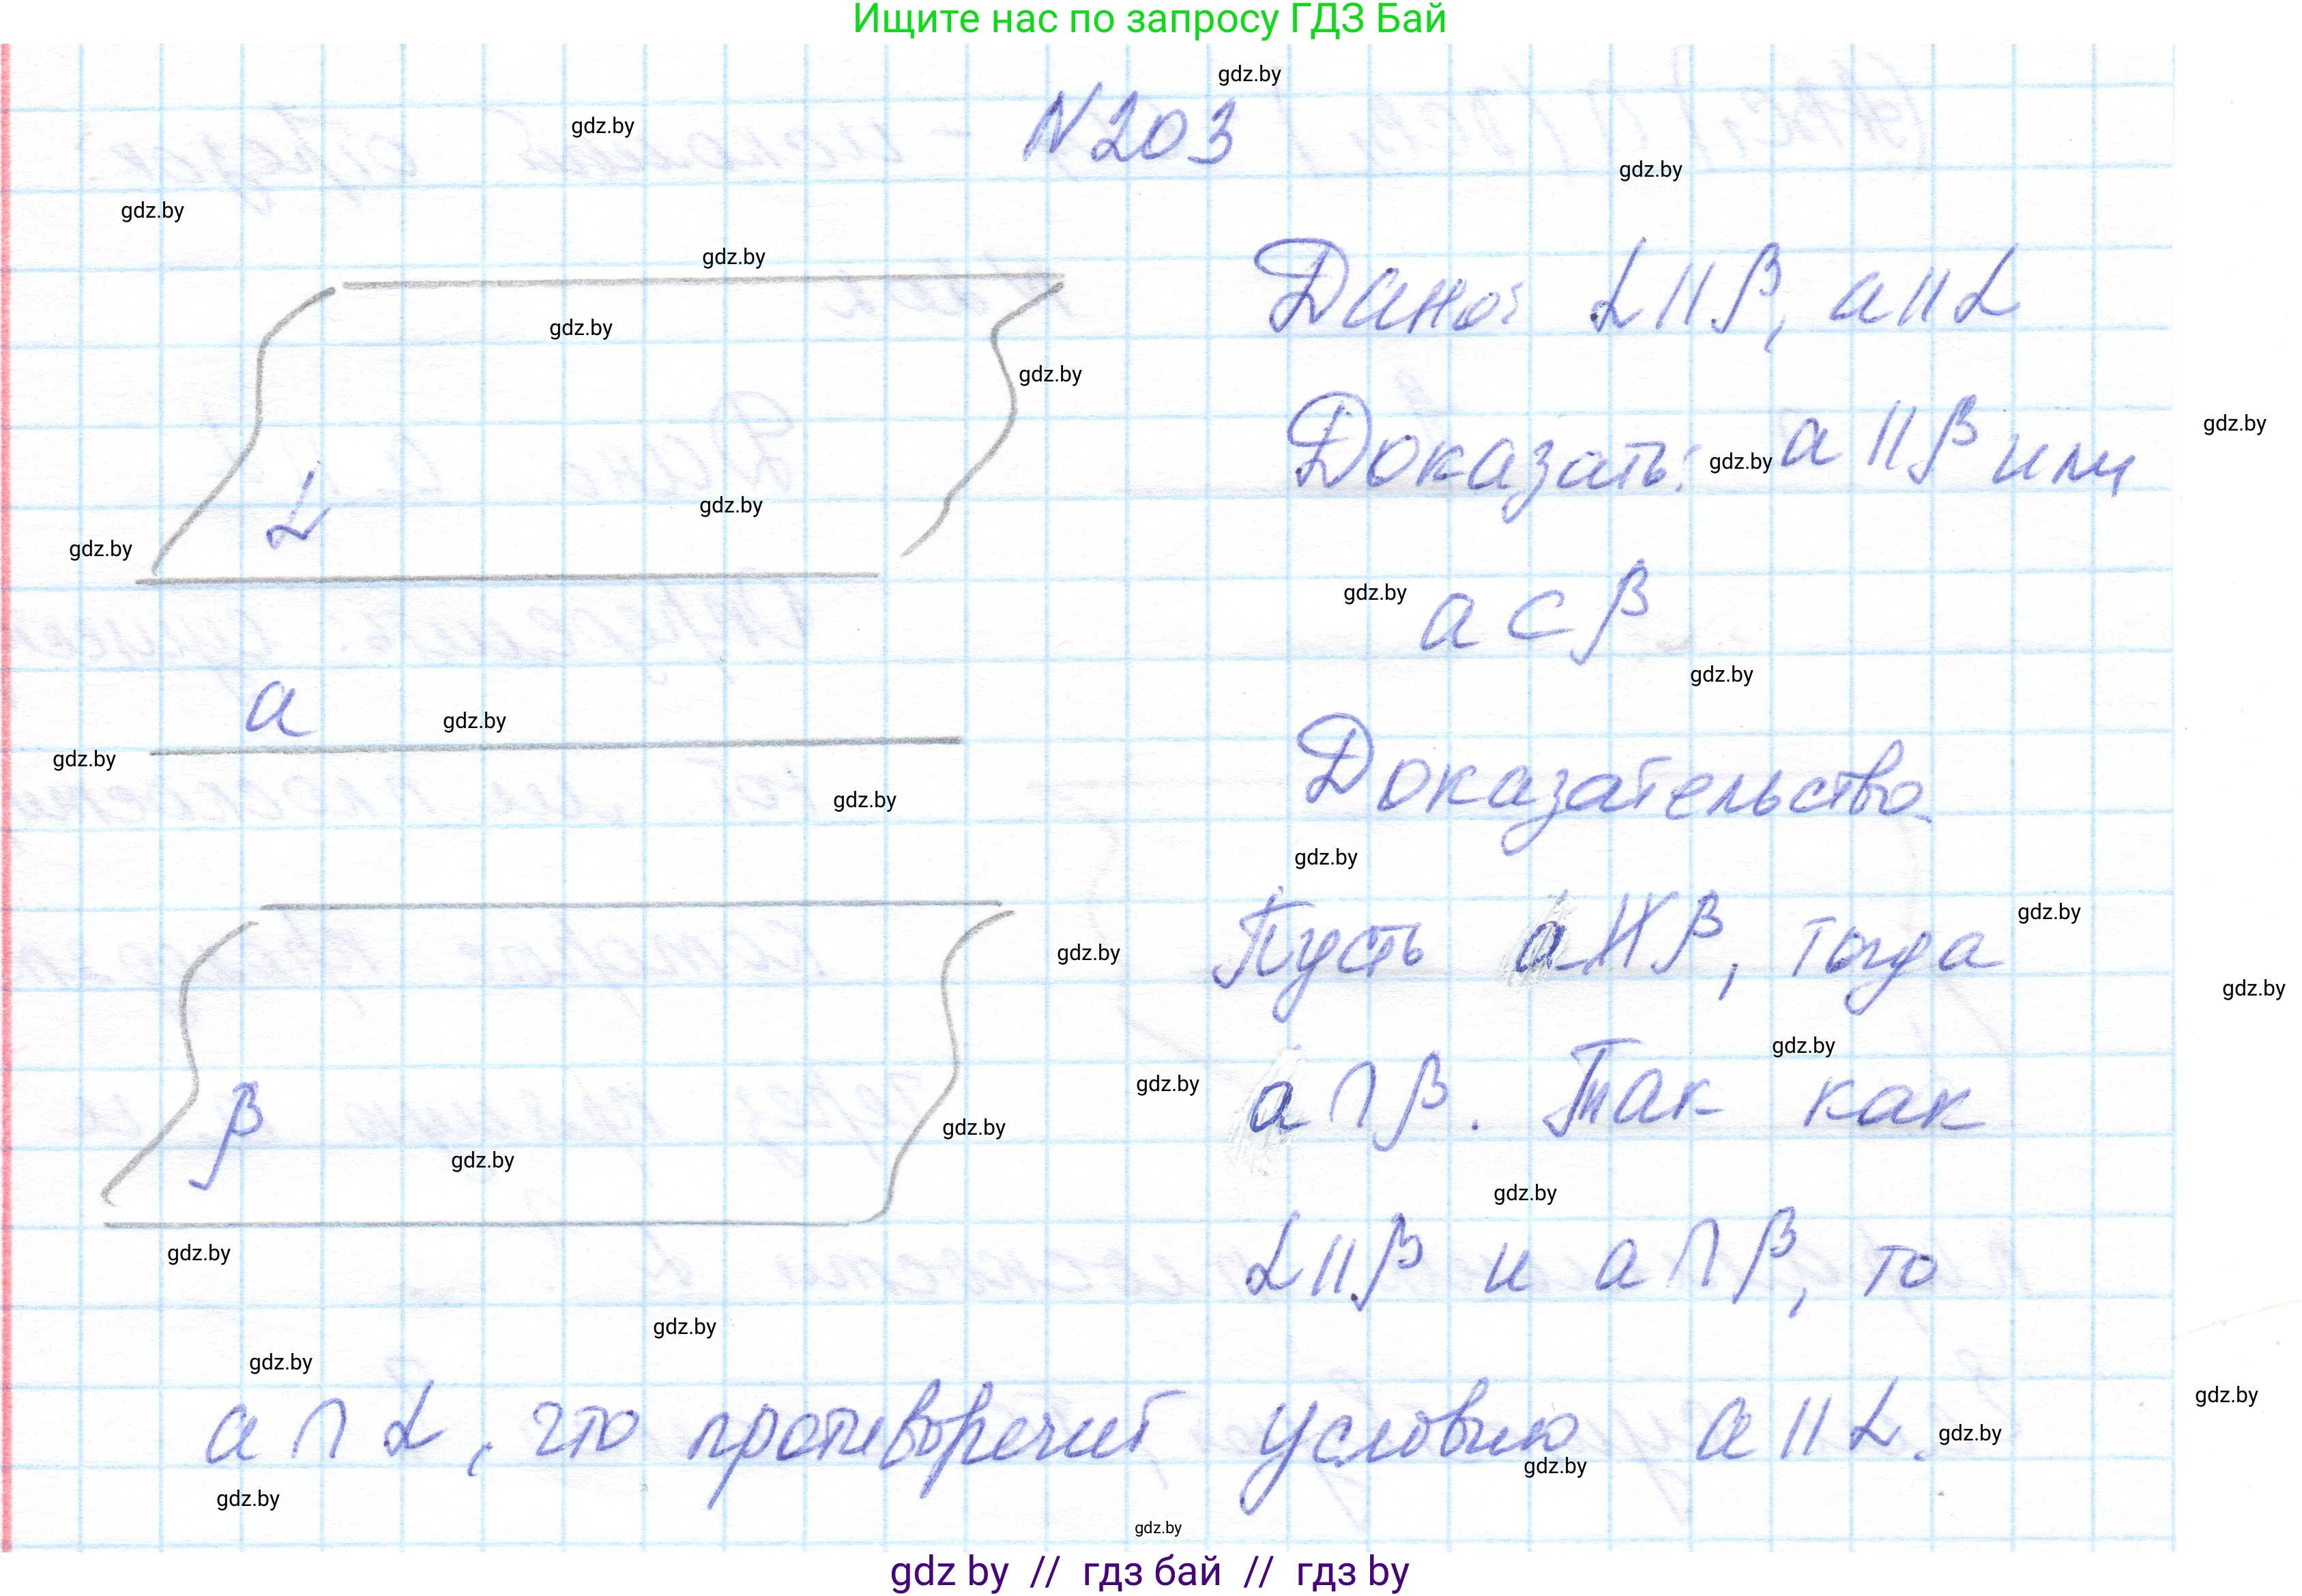 Ищите нас по запросу ГДЗ Бай
gdz.by
N203
gdz.by
gdz.by
gdz.by
gdz.by
Дано: α || β, a || α
gdz.by
gdz.by
gdz.by
Доказать: a || β или
gdz.by
gdz.by
α
gdz.by
gdz.by
a ⊂ β
gdz.by
gdz.by
a
gdz.by
gdz.by
Доказательство.
gdz.by
gdz.by
Пусть a ∦ β, тогда
gdz.by
gdz.by
gdz.by
gdz.by
a ∩ β. Так как
gdz.by
gdz.by
β
gdz.by
gdz.by
α || β и a ∩ β, то
gdz.by
gdz.by
gdz.by
gdz.by
a ∩ α, что противоречит условию a || α.
gdz.by
gdz.by
gdz.by
gdz.by
gdz by // гдз бай // гдз by